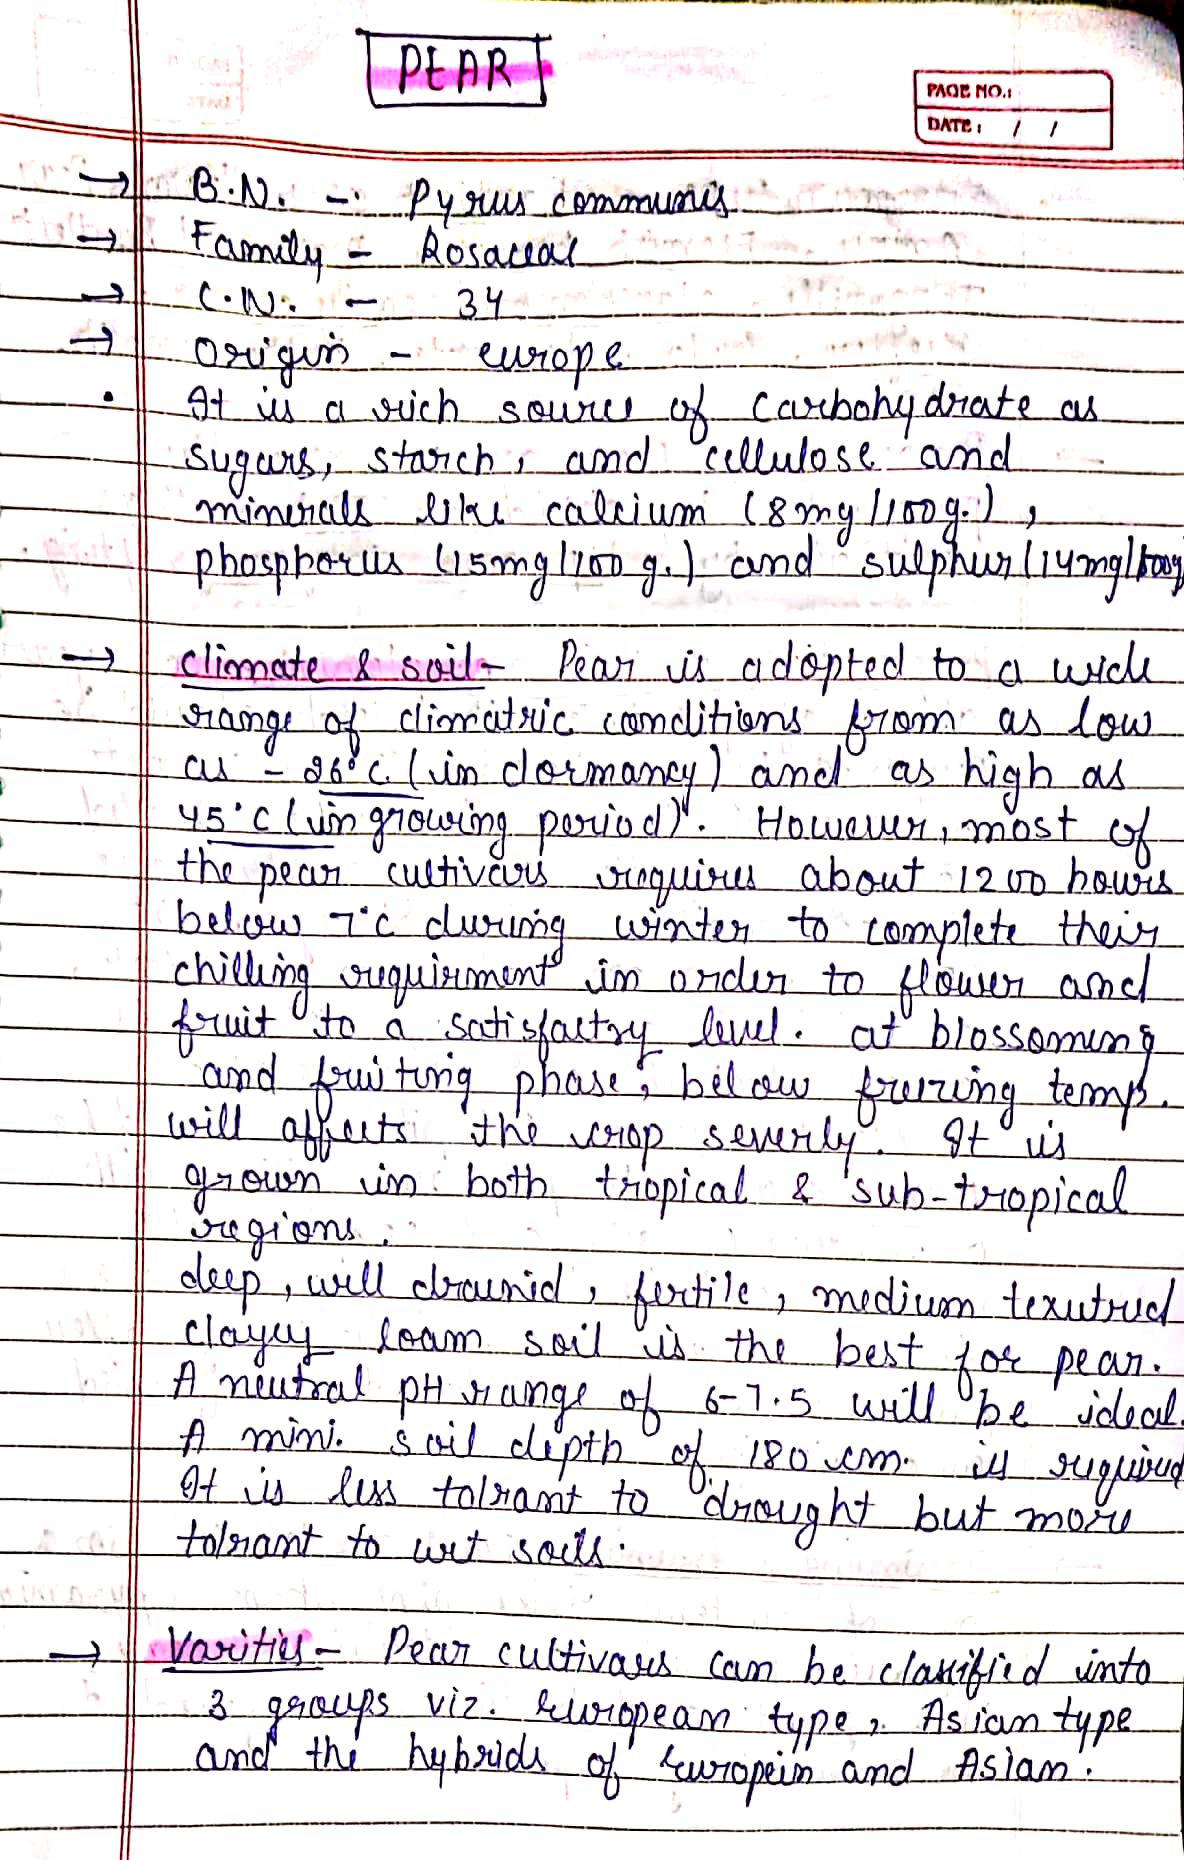 PEAR
PAGE NO.:
DATE: / /
→ B.N. - Pyrus communis
→ Family - Rosaceae
→ C.N. - 34
→ Origin - europe
• It is a rich source of carbohydrate as
sugars, starch, and cellulose and
minerals like calcium (8mg/100g.),
phosphorus (15mg/100 g.) and sulphur (14mg/100g
→ climate & soil - Pear is adopted to a wide
range of climatric conditions from as low
as -26°C (in dormancy) and as high as
45°C (in growing period). However, most of
the pear cultivars requires about 1200 hours
below 7°C during winter to complete their
chilling requirment in order to flower and
fruit to a satisfactry level. at blossoming
and fruiting phase, below freezing temp.
will affects the crop severly. It is
grown in both tropical & sub-tropical
regions.
deep, will drainid, fertile, medium texutrud
clayey loam soil is the best for pear.
A neutral pH range of 6-7.5 will be ideal.
A mini. soil depth of 180 cm. is required
It is less tolrant to drought but more
tolrant to wet soils.
→ Varities - Pear cultivars can be classified into
3 groups viz. European type, Asian type
and the hybrids of Europein and Asian.